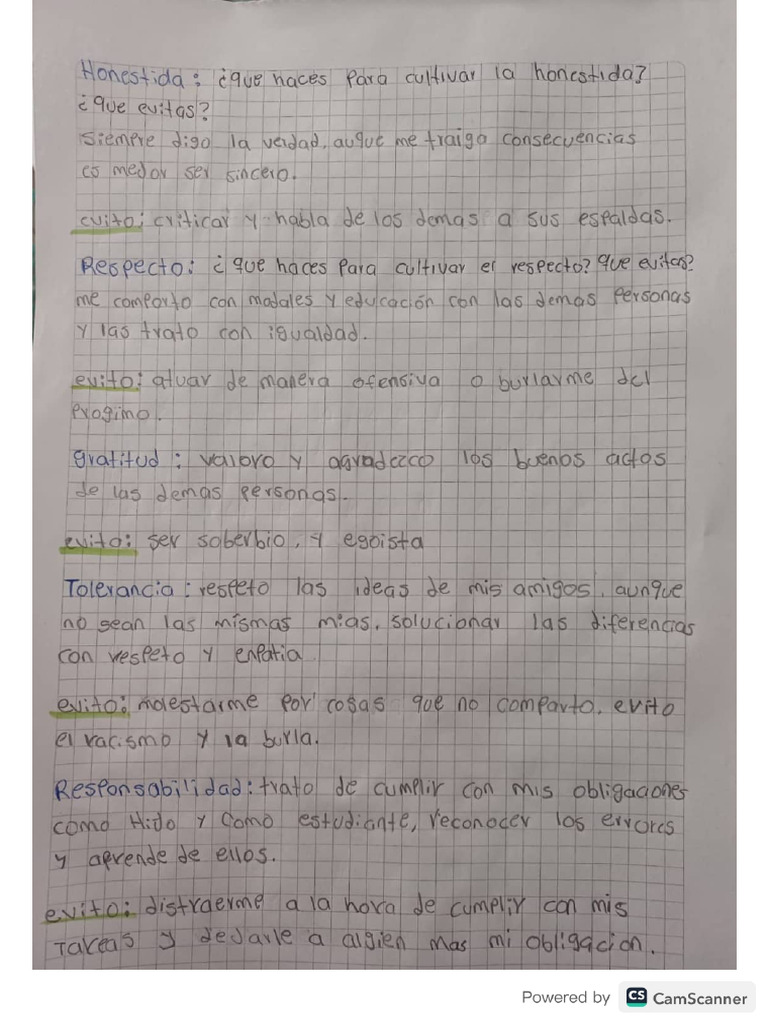 Honestida: ¿que haces para cultivar la honestida?
¿que evitas?
siempre digo la verdad, auque me traiga consecuencias
es medor ser sincero.
evito: criticar y habla de los demas a sus espaldas.
Respecto: ¿que haces para cultivar el respecto? que evitas?
me comporto con modales y educación con las demas personas
y las trato con igualdad.
evito: atuar de manera ofensiva o burlarme del
progimo.
gratitud: valoro y agradezco los buenos actos
de las demas personas.
evito: ser soberbio, y egoista
Tolerancia: respeto las ideas de mis amigos, aunque
no sean las mismas mias, solucionar las diferencias
con respeto y enpatia
evito: molestarme por cosas que no comparto. evito
el racismo y la burla.
Responsabilidad: trato de cumplir con mis obligaciones
como Hido y como estudiante, reconocer los errores
y aprende de ellos.
evito: distraerme a la hora de cumplir con mis
tareas y dedarle a algien mas mi obligacion.
Powered by CS CamScanner